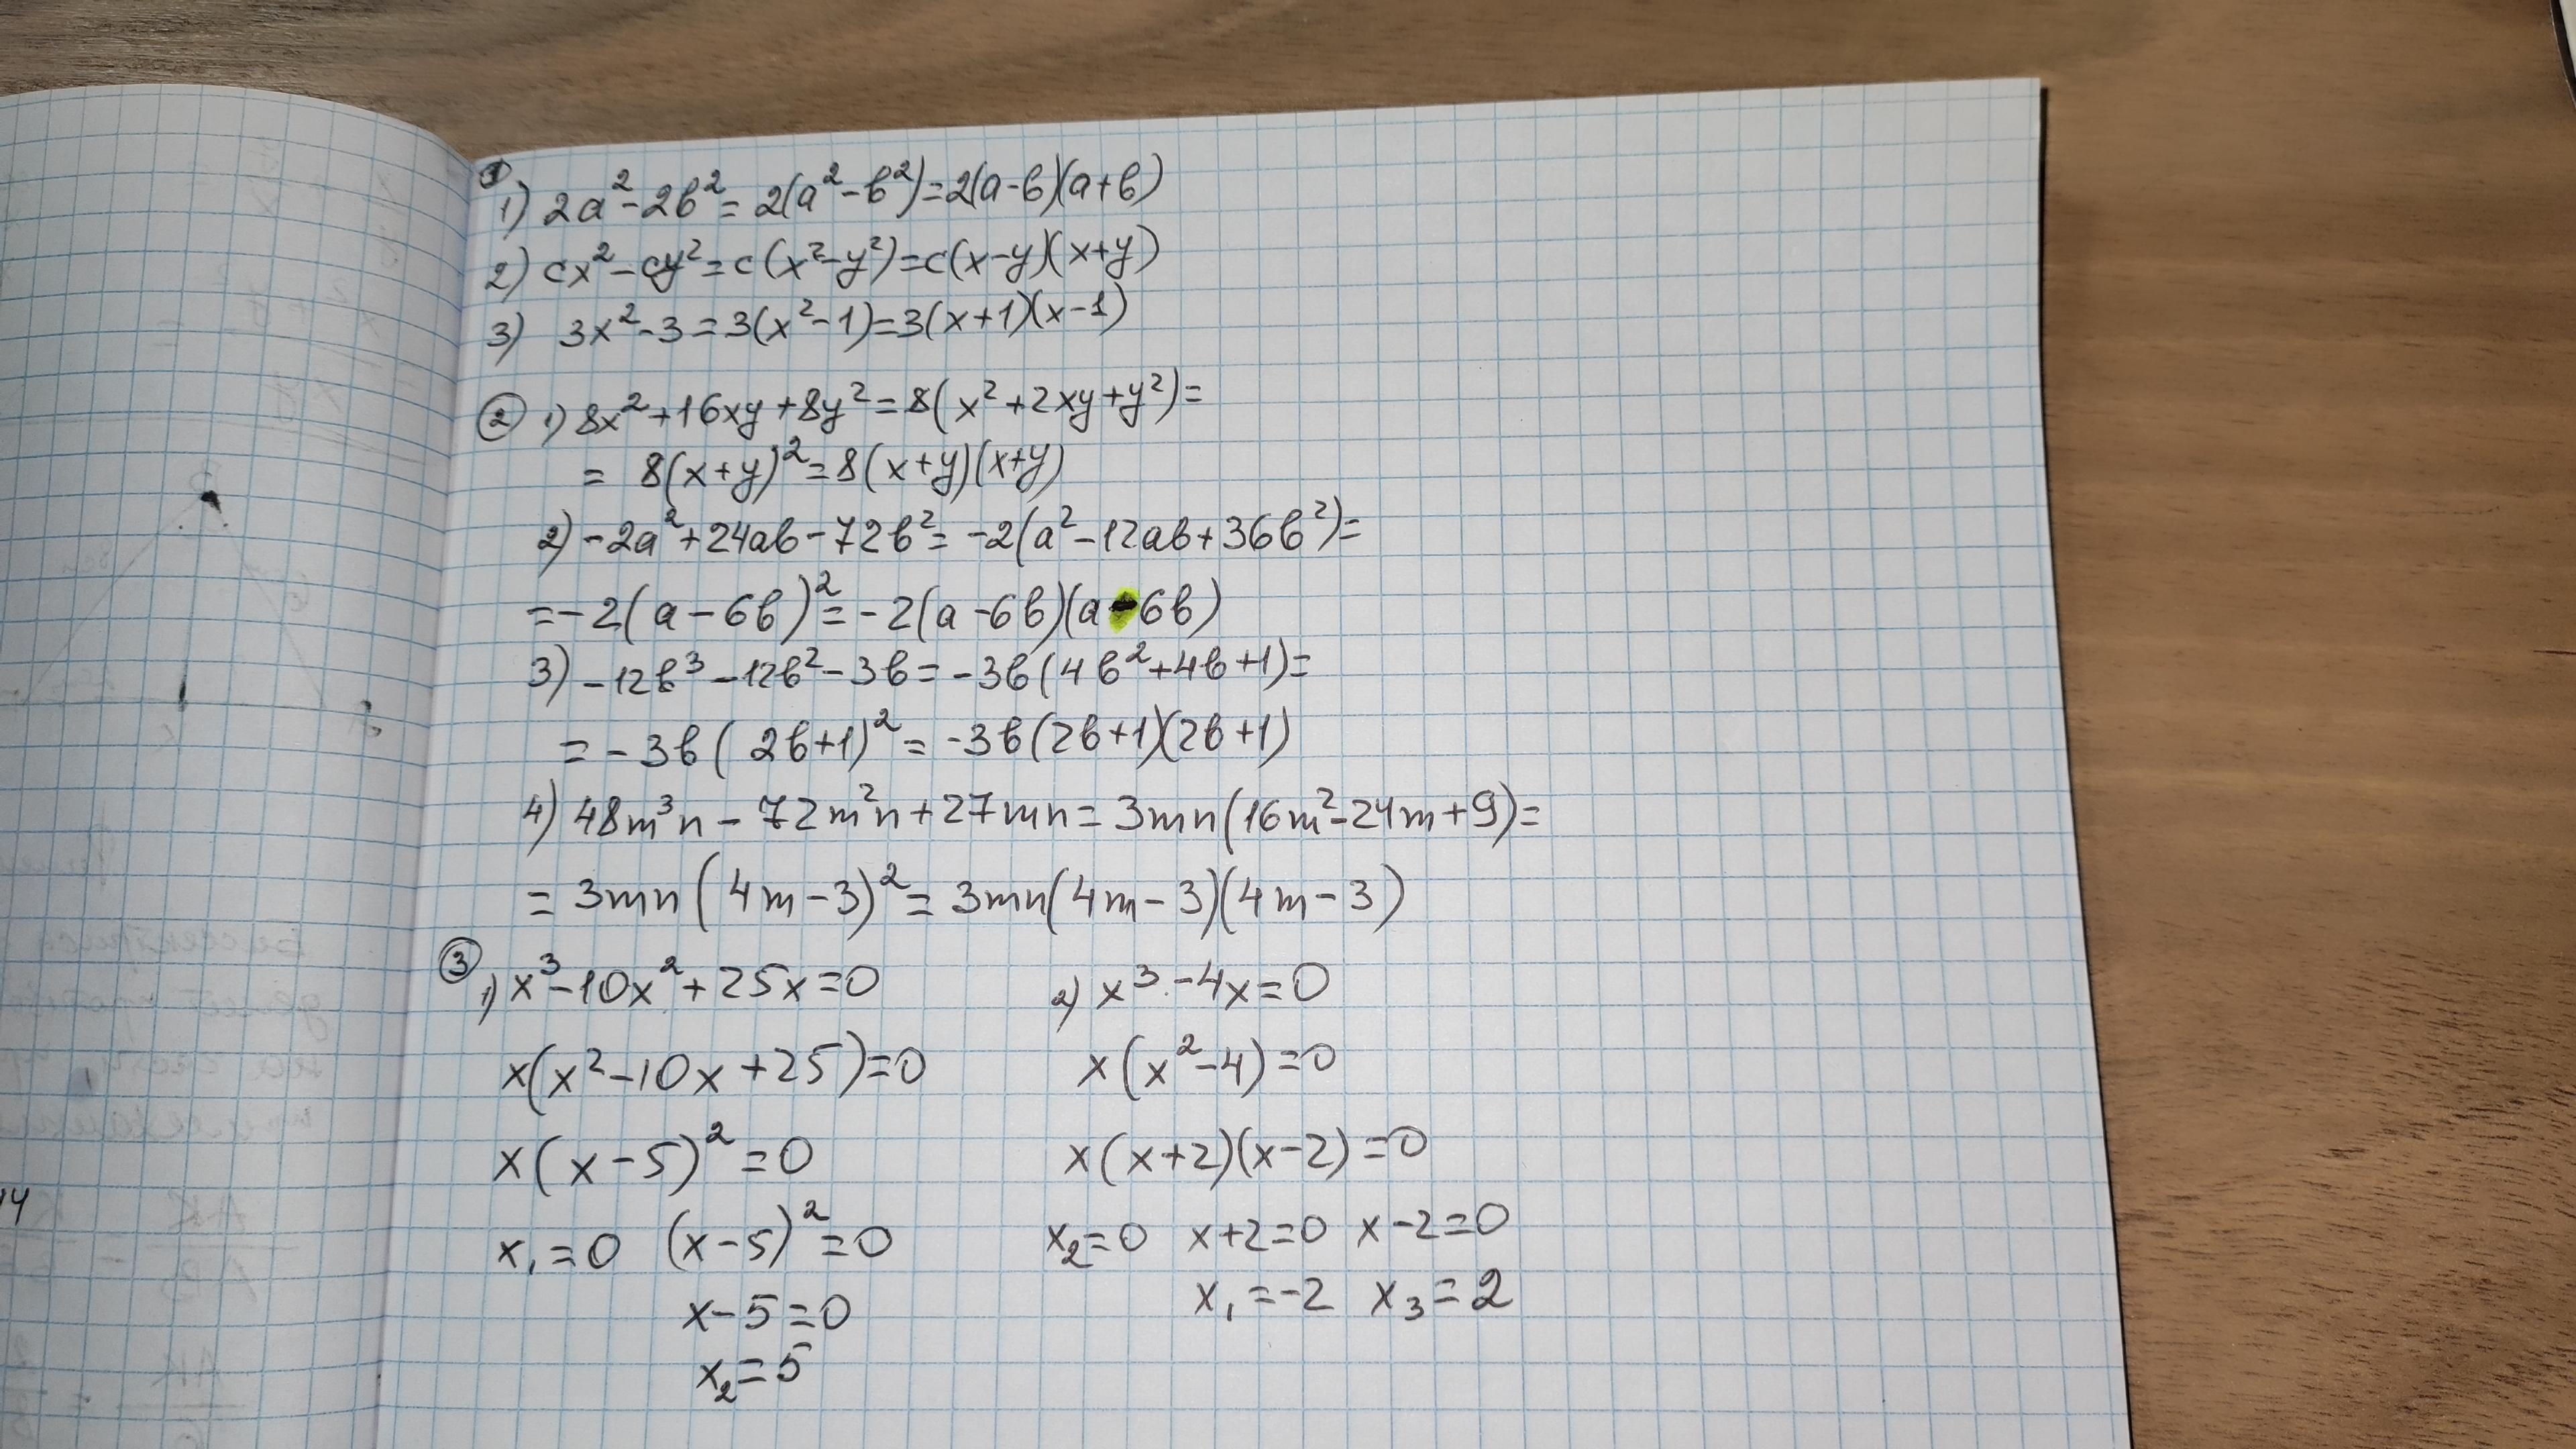 ①
1) 2a² - 2b² = 2(a² - b²) = 2(a - b)(a + b)
2) cx² - cy² = c(x² - y²) = c(x - y)(x + y)
3) 3x² - 3 = 3(x² - 1) = 3(x + 1)(x - 1)
② 1) 8x² + 16xy + 8y² = 8(x² + 2xy + y²) =
= 8(x + y)² = 8(x + y)(x + y)
2) -2a² + 24ab - 72b² = -2(a² - 12ab + 36b²) =
= -2(a - 6b)² = -2(a - 6b)(a - 6b)
3) -12b³ - 12b² - 3b = -3b(4b² + 4b + 1) =
= -3b(2b + 1)² = -3b(2b + 1)(2b + 1)
4) 48m³n - 72m²n + 27mn = 3mn(16m² - 24m + 9) =
= 3mn(4m - 3)² = 3mn(4m - 3)(4m - 3)
③
1) x³ - 10x² + 25x = 0
x(x² - 10x + 25) = 0
x(x - 5)² = 0
x₁ = 0 (x - 5)² = 0
x - 5 = 0
x₂ = 5
2) x³ - 4x = 0
x(x² - 4) = 0
x(x + 2)(x - 2) = 0
x₂ = 0 x + 2 = 0 x - 2 = 0
x₁ = -2 x₃ = 2